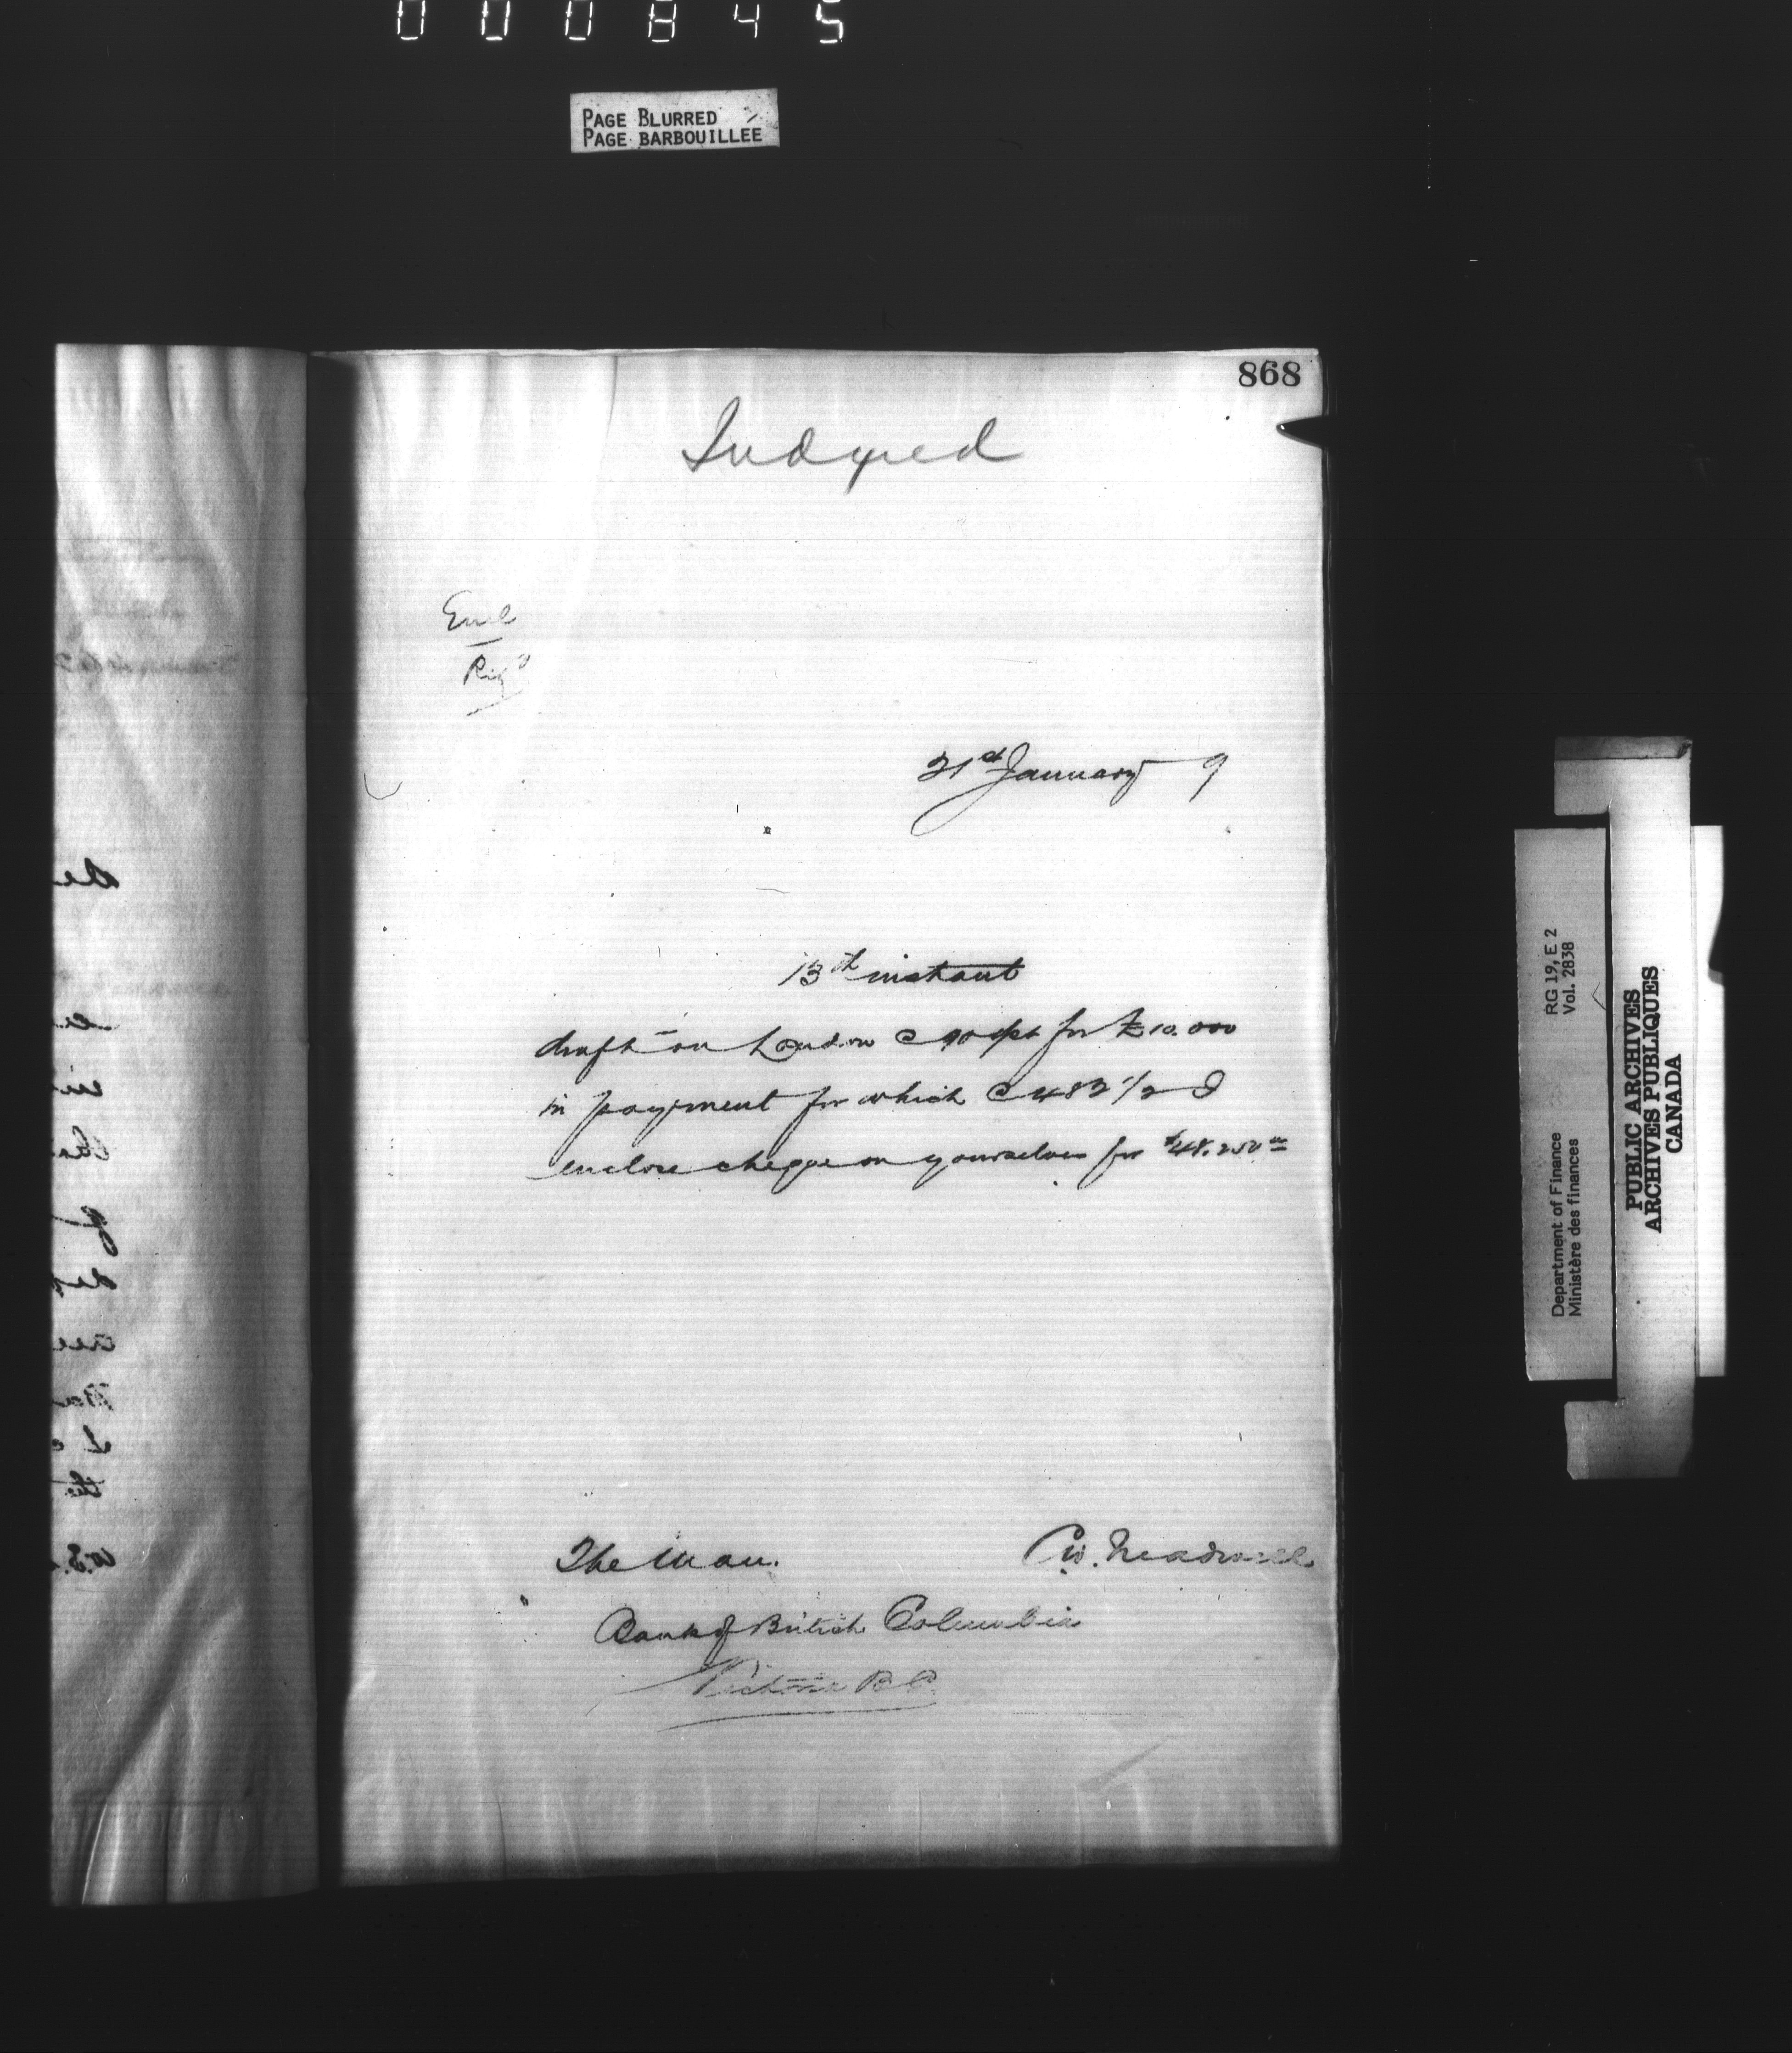 000845
PAGE BLURRED
PAGE BARBOUILLÉE
868
Indexed
Encl
Rigd
21st January 9
13th instant
draft on London @ 90 d/st for £10.000
in payment for which @ 482 1/2 I
enclose cheque on yourselves for $48.250 00
The Man.
Bank of British Columbia
Victoria B.C.
RG 19, E 2
Vol. 2838
Department of Finance
Ministère des finances
PUBLIC ARCHIVES
ARCHIVES PUBLIQUES
CANADA